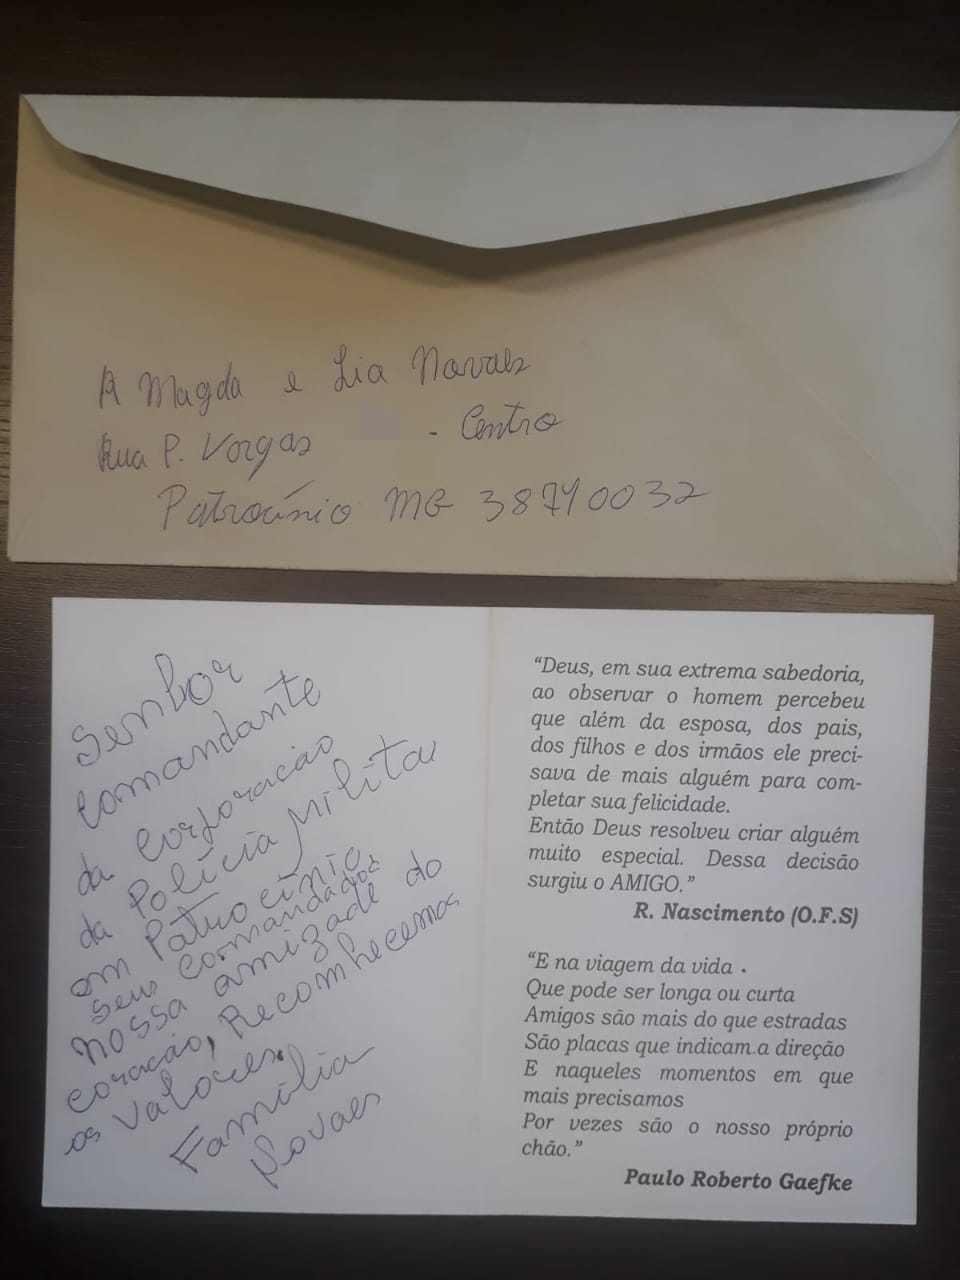 A Magda e Lia Novaes
Rua P. Vargas - Centro
Patrocínio MG 38740032
Senhor
comandante
da Corporacão
da Polícia Militar
em Patrocínio,
seus comandados
nossa amizade do
coracão, Reconhecemos
os valores.
Família
Novaes
“Deus, em sua extrema sabedoria,
ao observar o homem percebeu
que além da esposa, dos pais,
dos filhos e dos irmãos ele preci-
sava de mais alguém para com-
pletar sua felicidade.
Então Deus resolveu criar alguém
muito especial. Dessa decisão
surgiu o AMIGO.”
R. Nascimento (O.F.S)
“E na viagem da vida .
Que pode ser longa ou curta
Amigos são mais do que estradas
São placas que indicam.a direção
E naqueles momentos em que
mais precisamos
Por vezes são o nosso próprio
chão.”
Paulo Roberto Gaefke